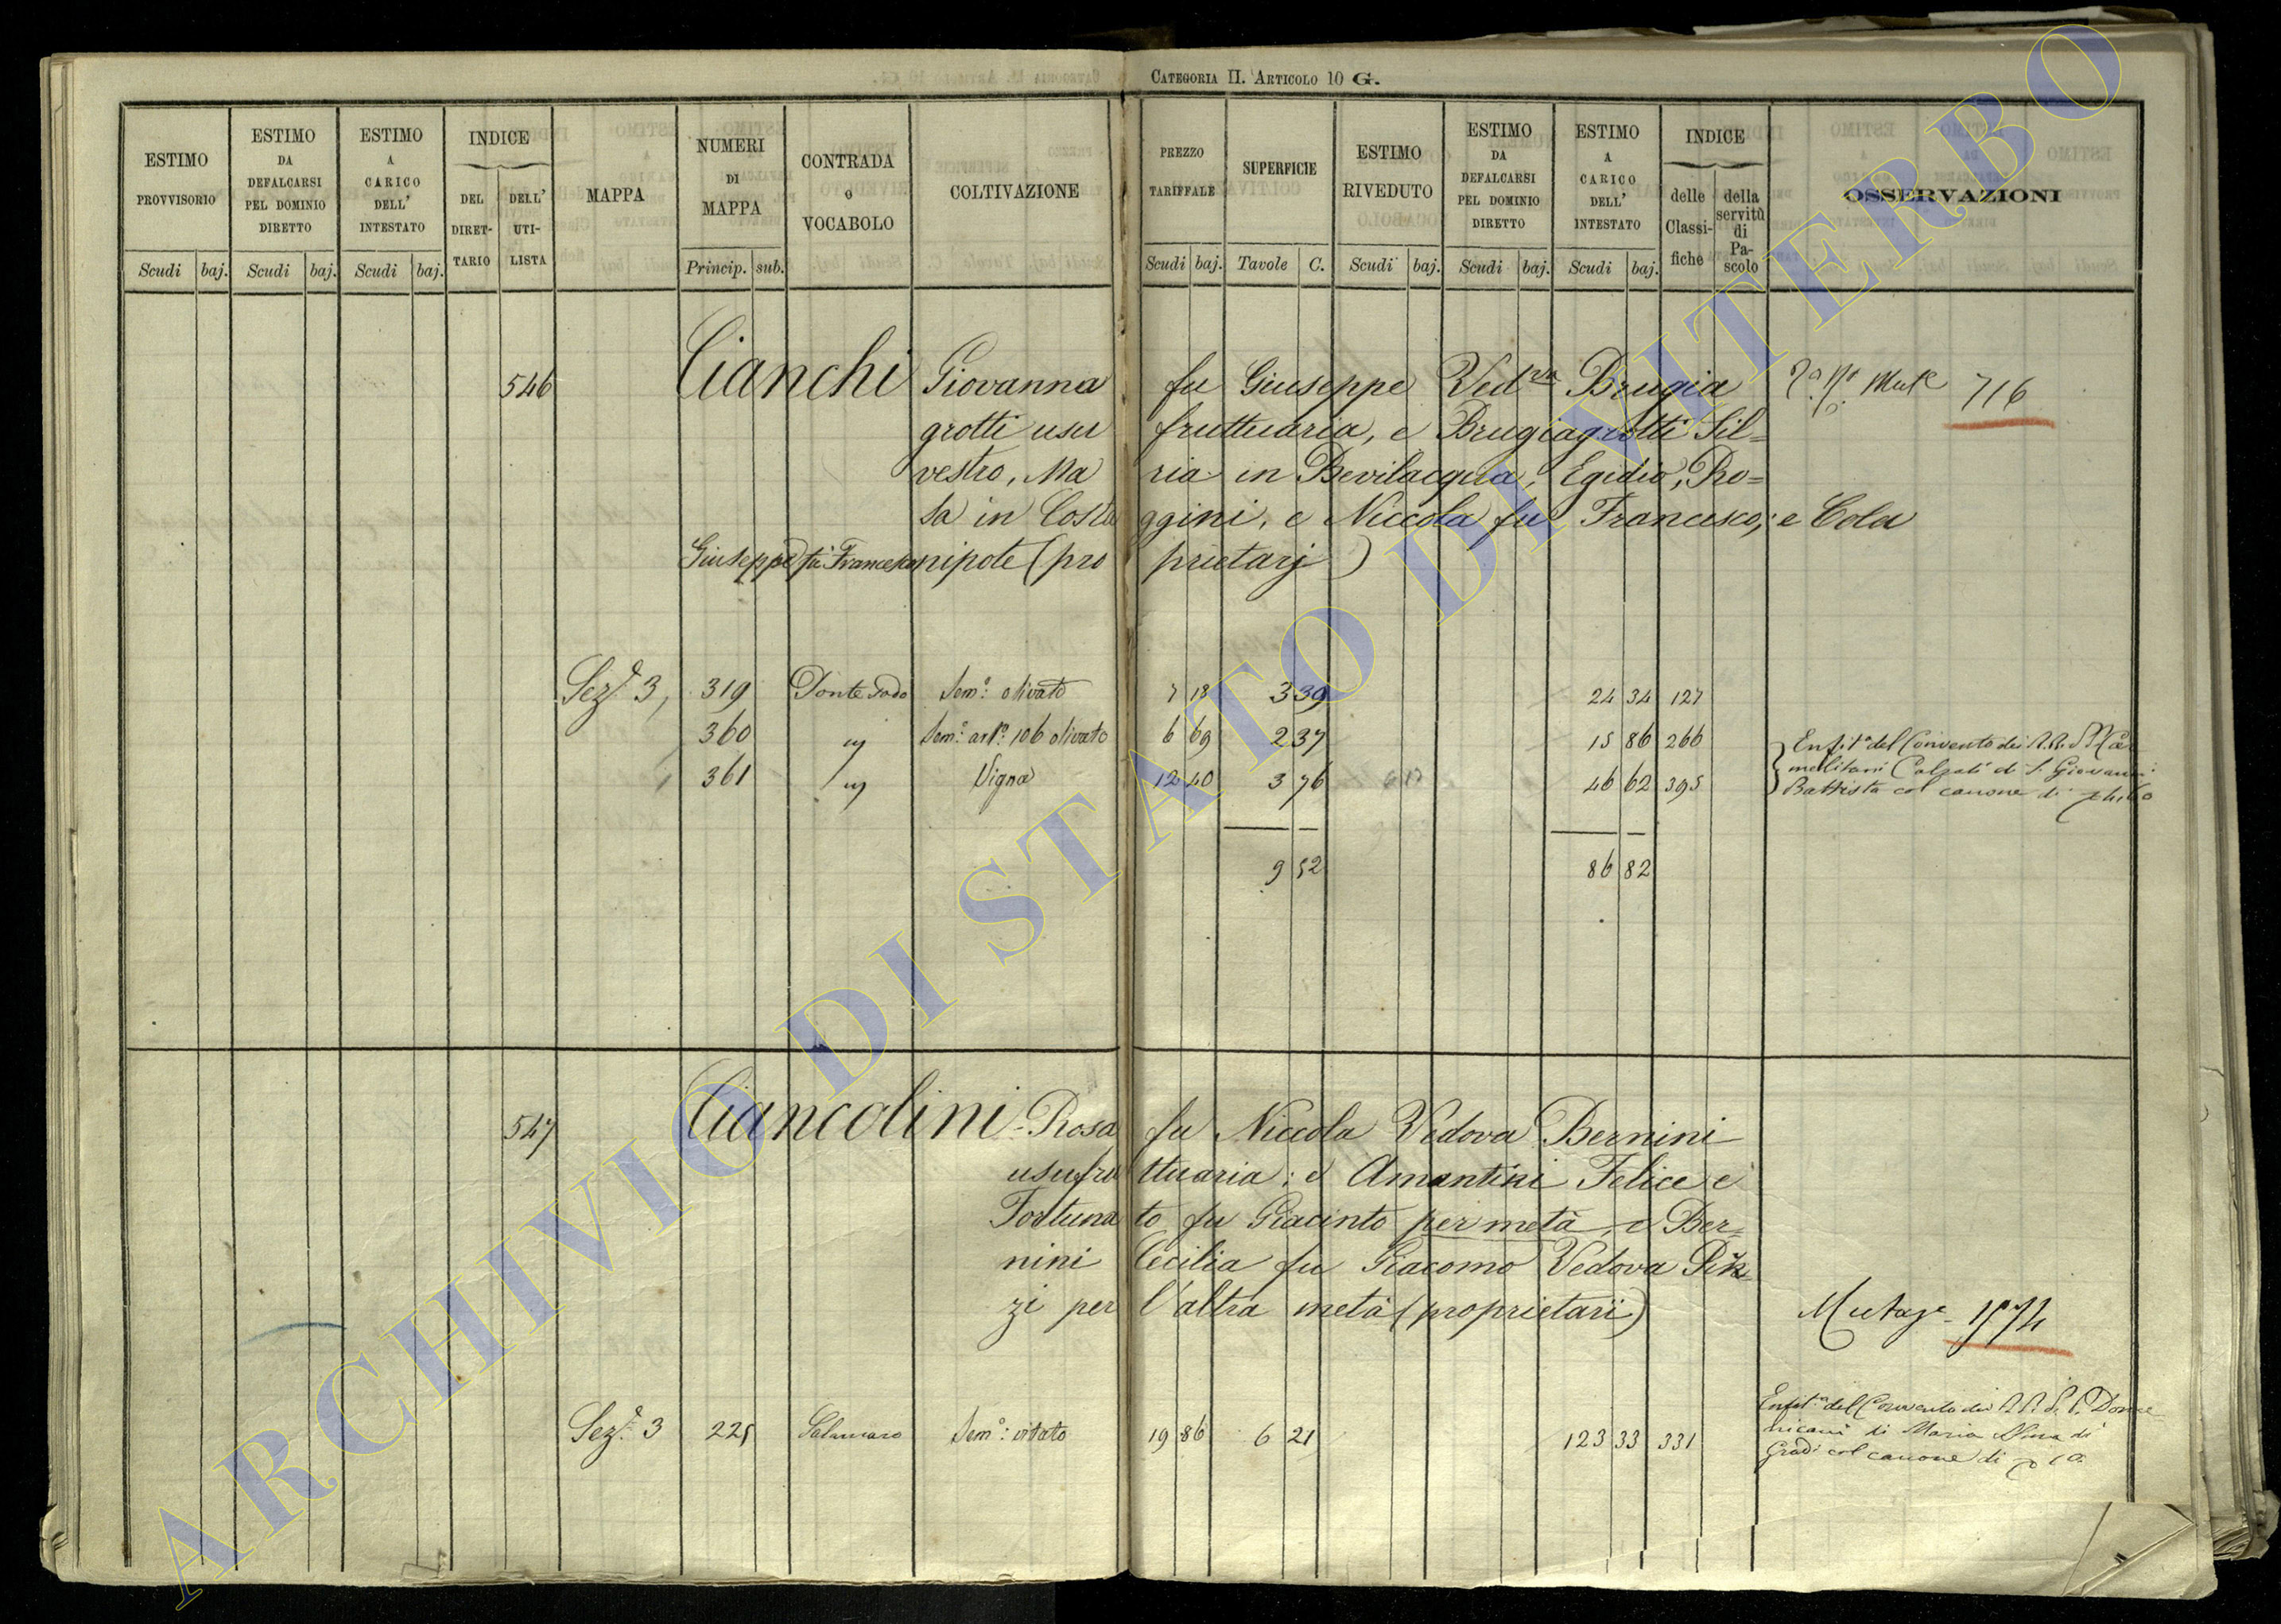 CATEGORIA II. ARTICOLO 10 G.
ESTIMO PROVVISORIO Scudi baj.
ESTIMO DA DEFALCARSI PEL DOMINIO DIRETTO Scudi baj.
ESTIMO A CARICO DELL' INTESTATO Scudi baj.
INDICE
DEL DIRET-TARIO
DELL' UTI-LISTA
MAPPA
NUMERI DI MAPPA Princip. sub.
CONTRADA o VOCABOLO
COLTIVAZIONE
PREZZO TARIFFALE Scudi baj.
SUPERFICIE Tavole C.
ESTIMO RIVEDUTO Scudi baj.
ESTIMO DA DEFALCARSI PEL DOMINIO DIRETTO Scudi baj.
ESTIMO A CARICO DELL' INTESTATO Scudi baj.
INDICE
delle Classi-fiche
della servitù di Pa-scolo
OSSERVAZIONI
546 Cianchi Giovanna fu Giuseppe Ved.va Brugia 716
grotti usu fruttuaria, e Brugiagrotti Sil=
vestro, Ma ria in Bevilacqua, Egidio, Ro=
sa in Costa ggini, e Niccola fu Francesco, e Cola
Giuseppe fu Francesco nipote (pro prietarj)
Sez.e 3, 319 Sem.o olivato 7 18 3 39 24 34 127
360 " Sem.o olivato 6 69 2 37 15 86 266 Enfit.a del Convento dei
361 " Vigna 12 40 3 76 46 62 395 mellitani Calzati di S. Giovanni
Battista col canone di
9 52 86 82
547 Ciancolini Rosa fu Niccola Vedova Bernini
usufru ttuaria: e Amantini Felice e
Fortuna to fu Giacinto per metà, e Ber=
nini Cecilia fu Giacomo Vedova
zi per l'altra metà (proprietari)
Sez.e 3 225 Sem.o vitato 19 86 6 21 123 33 331
Enfit.a del Convento dei Dome
nicani di Maria di
Gradi col canone di
ARCHIVIO DI STATO DI VITERBO